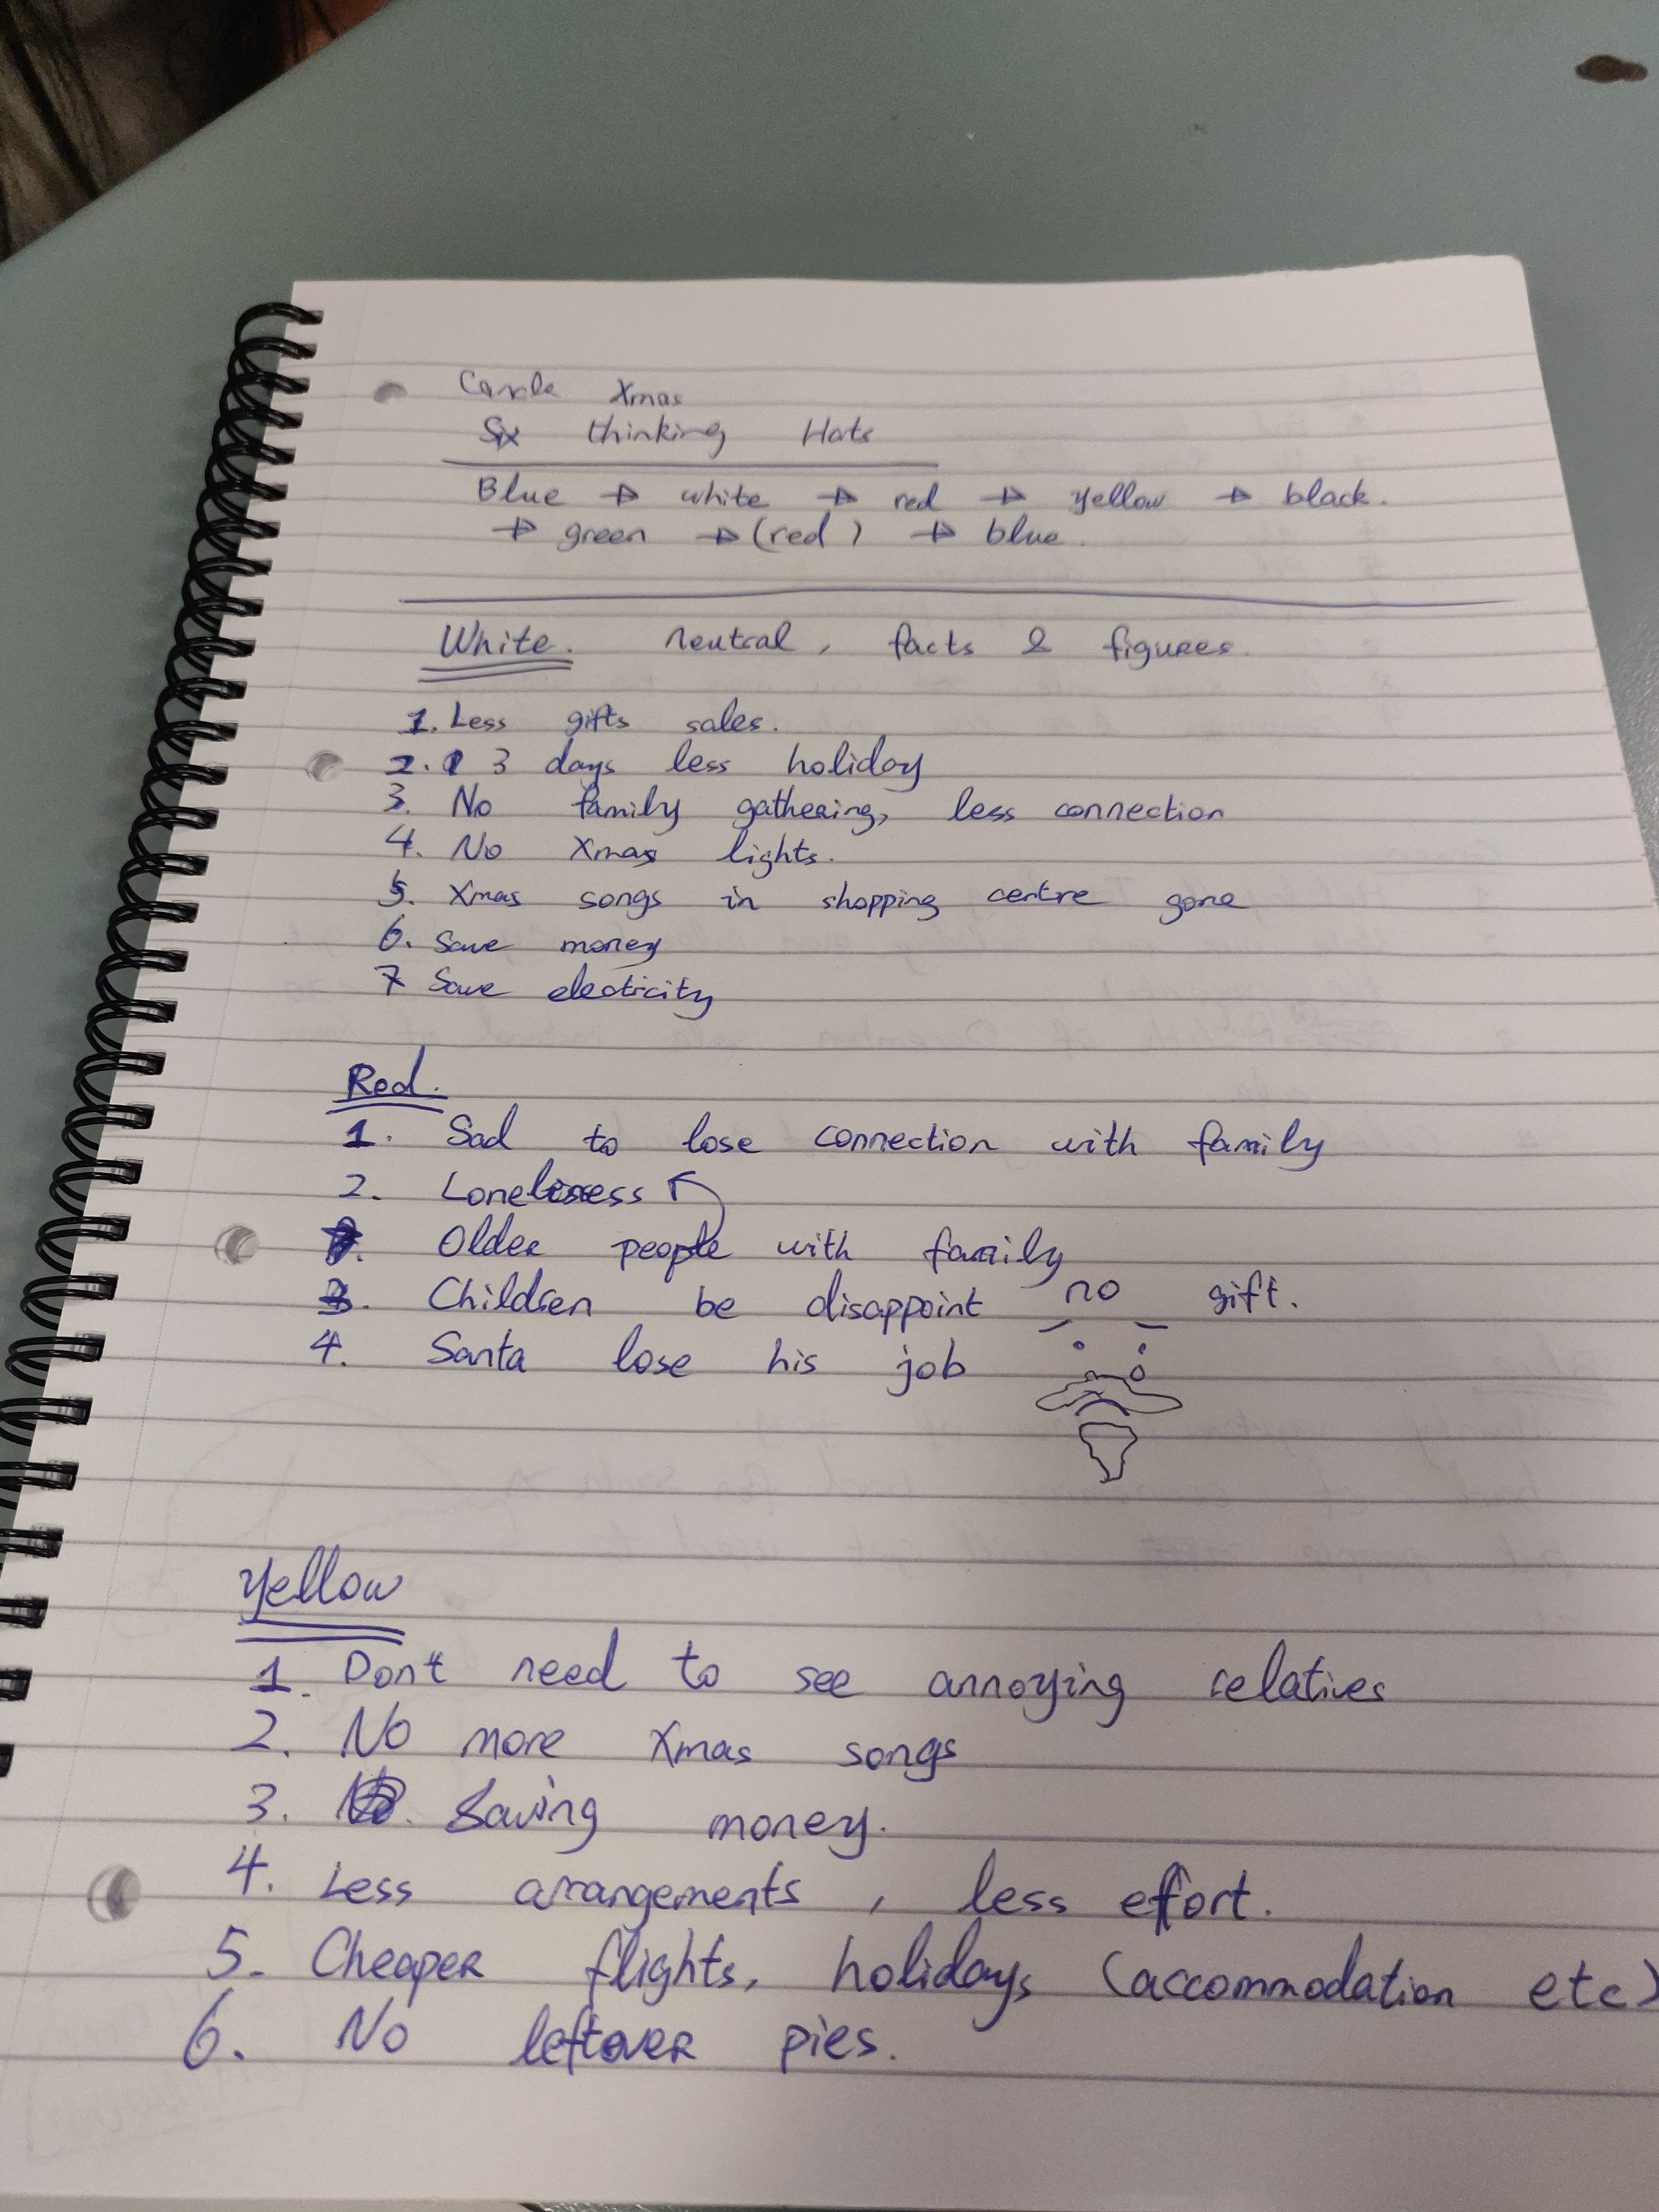 Xmas
Six thinking Hats
Blue → white → red → yellow → black.
→ green → (red) → blue.
White. neutral, facts & figures.
1. Less gifts sales.
2. 3 days less holiday
3. No family gathering, less connection
4. No Xmas lights.
5. Xmas songs in shopping centre gone
6. Save money
7 Save electricity
Red.
1. Sad to lose connection with family
2. Loneliness
Older people with family
3. Children be disappoint no gift.
4. Santa lose his job
Yellow
1. Don't need to see annoying relatives
2. No more Xmas songs
3. Saving money.
4. Less arrangements, less effort.
5. Cheaper flights, holidays (accommodation etc)
6. No leftover pies.